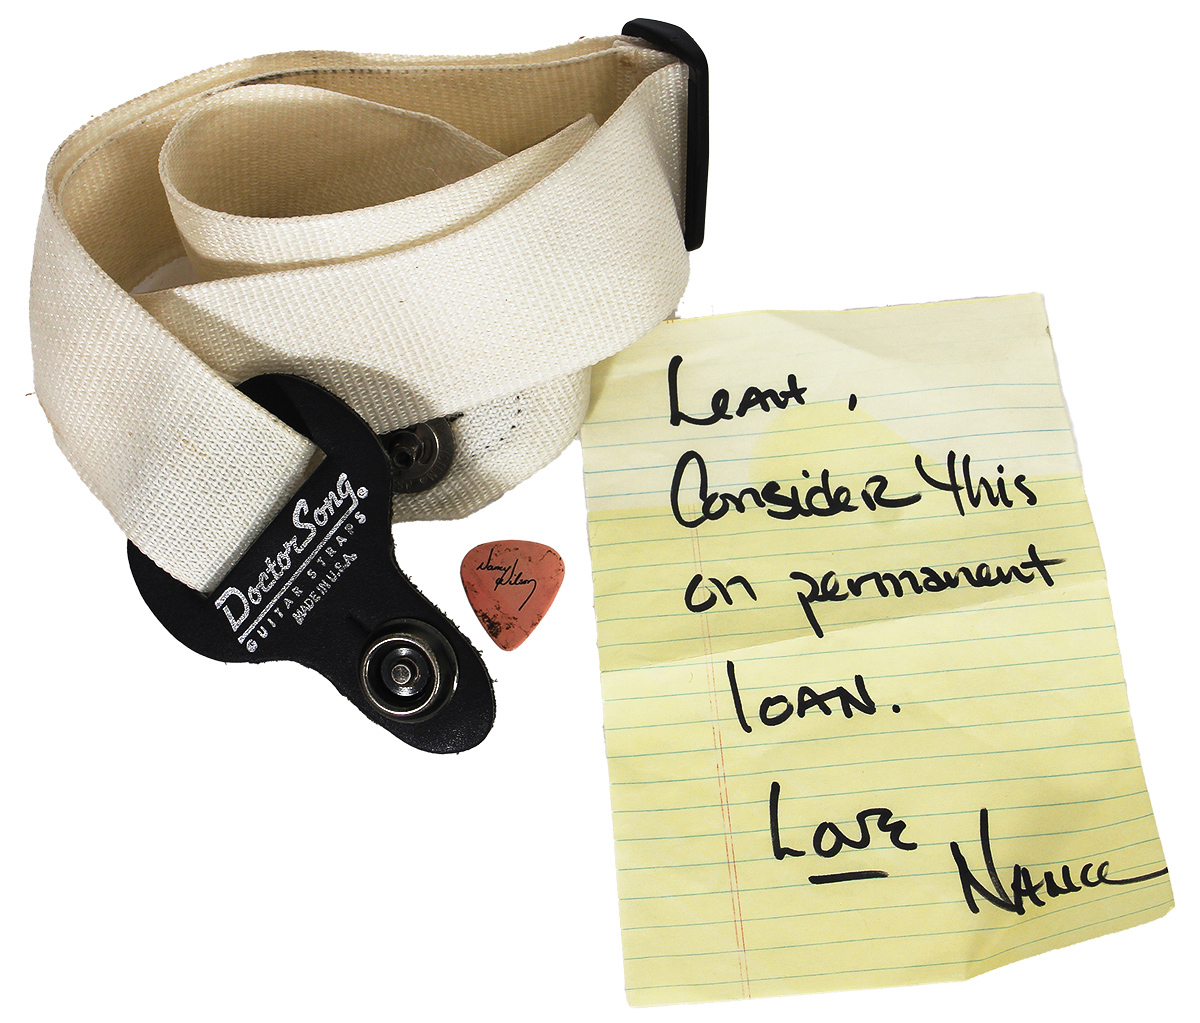 Doctor Song®
GUITAR STRAPS
MADE IN U.S.A.
Nancy
Wilson
Leavt,
Consider this
on permanent
loan.
Love
Nance